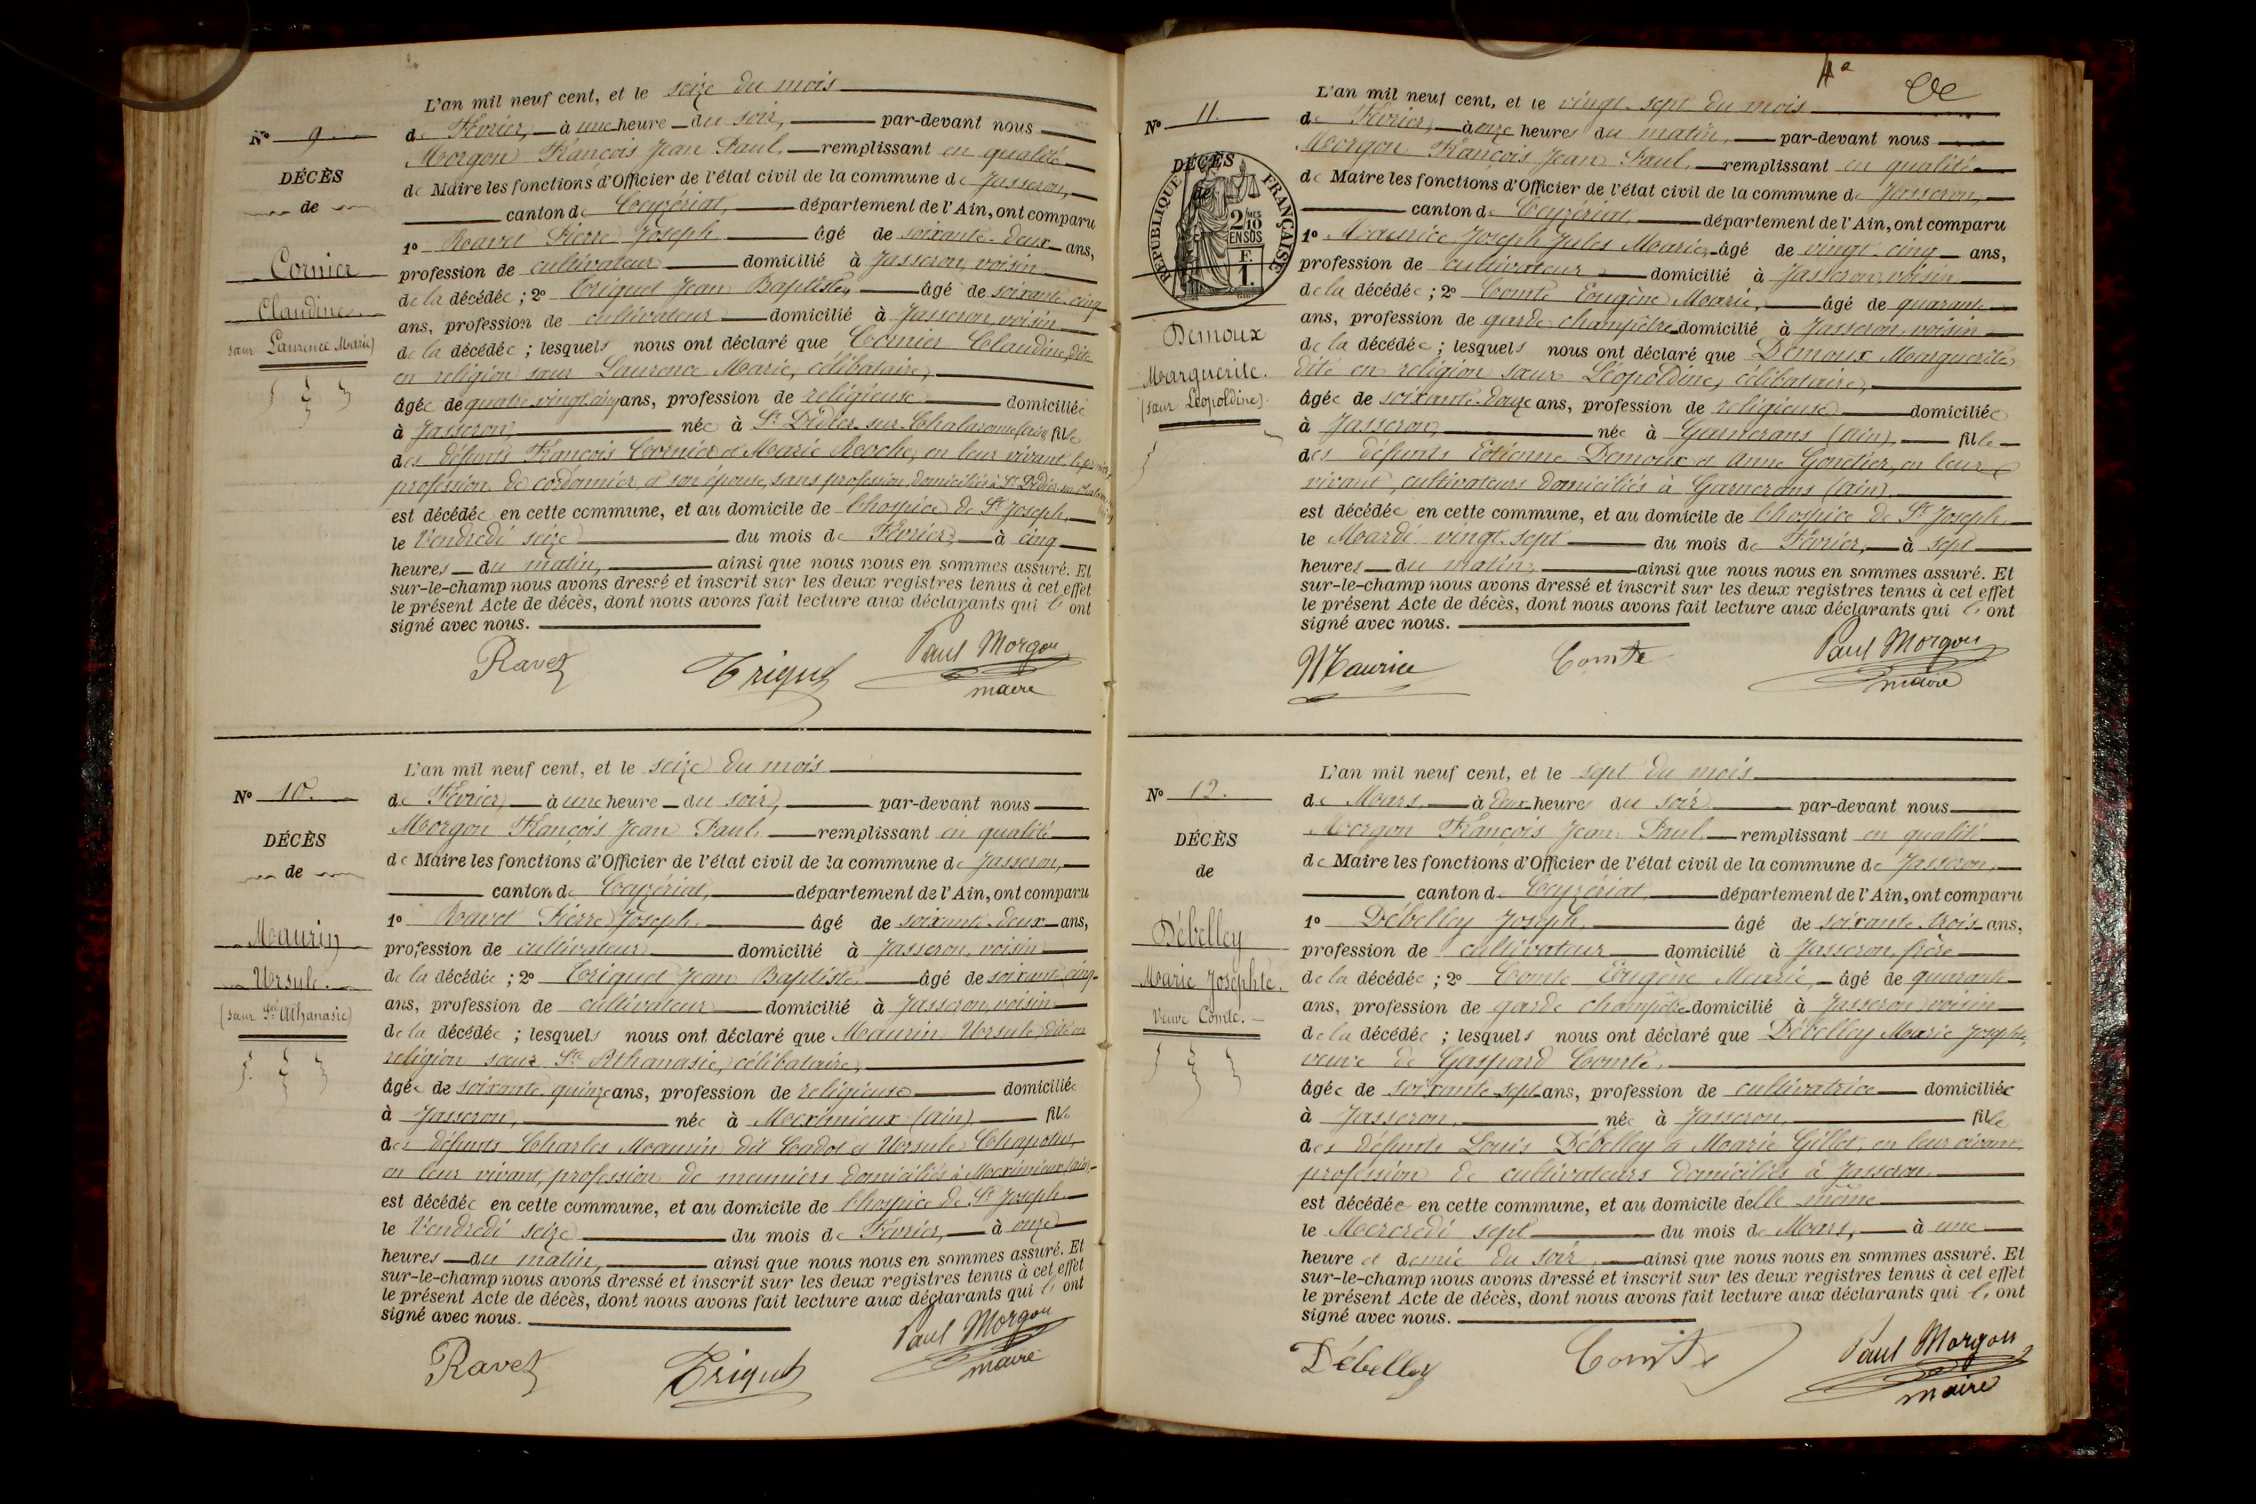 N° 9.
DÉCÈS
de
Cornier
Claudine
sœur Laurence Marie)
L'an mil neuf cent, et le seize du mois
de Février, à une heure du soir, par-devant nous
Morgon François Jean Paul, remplissant en qualité
de Maire les fonctions d'Officier de l'état civil de la commune de Jasseron,
canton de Ceyzériat, département de l'Ain, ont comparu
1° Ravet Pierre Joseph âgé de soixante-deux ans,
profession de cultivateur domicilié à Jasseron, voisin
de la décédée ; 2° Triquet Jean Baptiste, âgé de soixante-cinq
ans, profession de cultivateur domicilié à Jasseron, voisin
de la décédée ; lesquels nous ont déclaré que Cornier Claudine, dite
en religion sœur Laurence Marie, célibataire,
âgée de quatre-vingt-cinq ans, profession de religieuse domiciliée
à Jasseron, née à St Didier-sur-Chalaronne (ain) fille
des défunts François Cornier et Marie Roche, en leur vivant, le premier
profession de cordonnier et son épouse, sans profession, domiciliés à St Didier-sur-
est décédée en cette commune, et au domicile de l'hospice de St Joseph,
le Vendredi seize du mois de Février, à cinq
heures du matin, ainsi que nous nous en sommes assuré. Et
sur-le-champ nous avons dressé et inscrit sur les deux registres tenus à cet effet
le présent Acte de décès, dont nous avons fait lecture aux déclarants qui l' ont
signé avec nous.
Ravet Triquet Paul Morgon
maire
N° 10.
DÉCÈS
de
Maurin
Ursule.
(sœur Ste Athanasie)
L'an mil neuf cent, et le seize du mois
de Février, à une heure du soir, par-devant nous
Morgon François Jean Paul, remplissant en qualité
de Maire les fonctions d'Officier de l'état civil de la commune de Jasseron,
canton de Ceyzériat, département de l'Ain, ont comparu
1° Ravet Pierre Joseph. âgé de soixante-deux ans,
profession de cultivateur domicilié à Jasseron, voisin
de la décédée ; 2° Triquet Jean Baptiste, âgé de soixante-cinq
ans, profession de cultivateur domicilié à Jasseron, voisin
de la décédée ; lesquels nous ont déclaré que Maurin Ursule, dite en
religion sœur Ste Athanasie, célibataire,
âgée de soixante-quinze ans, profession de religieuse domiciliée
à Jasseron, née à Meximieux (ain) fille
des défunts Charles Maurin dit Cadot et Ursule Chapotus,
en leur vivant, profession de meuniers domiciliés à Meximieux (ain)
est décédée en cette commune, et au domicile de l'hospice de St Joseph
le Vendredi seize du mois de Février, à onze
heures du matin, ainsi que nous nous en sommes assuré. Et
sur-le-champ nous avons dressé et inscrit sur les deux registres tenus à cet effet
le présent Acte de décès, dont nous avons fait lecture aux déclarants qui l' ont
signé avec nous.
Ravet Triquet Paul Morgon
maire
4e
N° 11.
DÉCÈS
RÉPUBLIQUE FRANÇAISE
2 10
EN SUS
F.
1.
Demoux
Marguerite.
(sœur Léopoldine).
L'an mil neuf cent, et le vingt-sept du mois
de Février, à onze heures du matin, par-devant nous
Morgon François Jean Paul, remplissant en qualité
de Maire les fonctions d'Officier de l'état civil de la commune de Jasseron,
canton de Ceyzériat, département de l'Ain, ont comparu
1° Maurice Joseph Jules Marie, âgé de vingt-cinq ans,
profession de cultivateur domicilié à Jasseron, voisin
de la décédée ; 2° Comte Eugène Marie, âgé de quarante
ans, profession de garde champêtre domicilié à Jasseron, voisin
de la décédée ; lesquels nous ont déclaré que Demoux Marguerite,
dite en religion sœur Léopoldine, célibataire,
âgée de soixante-douze ans, profession de religieuse domiciliée
à Jasseron, née à Garnerans (ain) fille
des défunts Etienne Demoux et Anne Gonetier, en leur
vivant, cultivateurs domiciliés à Garnerans (ain)
est décédée en cette commune, et au domicile de l'hospice de St Joseph,
le Mardi vingt-sept du mois de Février, à sept
heures du matin, ainsi que nous nous en sommes assuré. Et
sur-le-champ nous avons dressé et inscrit sur les deux registres tenus à cet effet
le présent Acte de décès, dont nous avons fait lecture aux déclarants qui l' ont
signé avec nous.
Maurice Comte Paul Morgon
maire
N° 12.
DÉCÈS
de
Débelley
Marie Josephte.
Veuve Comte.
L'an mil neuf cent, et le sept du mois
de Mars, à deux heures du soir par-devant nous
Morgon François Jean Paul, remplissant en qualité
de Maire les fonctions d'Officier de l'état civil de la commune de Jasseron,
canton de Ceyzériat, département de l'Ain, ont comparu
1° Débelley Joseph, âgé de soixante-trois ans,
profession de cultivateur domicilié à Jasseron, frère
de la décédée ; 2° Comte Eugène Marie, âgé de quarante
ans, profession de garde champêtre domicilié à Jasseron, voisin
de la décédée ; lesquels nous ont déclaré que Débelley Marie Josephte,
veuve de Gaspard Comte,
âgée de soixante-sept ans, profession de cultivatrice domiciliée
à Jasseron, née à Jasseron, fille
des défunts Louis Débelley et Marie Gillet, en leur vivant,
profession de cultivateurs domiciliés à Jasseron
est décédée en cette commune, et au domicile d'elle même
le Mercredi sept du mois de Mars, à une
heure et demie du soir, ainsi que nous nous en sommes assuré. Et
sur-le-champ nous avons dressé et inscrit sur les deux registres tenus à cet effet
le présent Acte de décès, dont nous avons fait lecture aux déclarants qui l' ont
signé avec nous.
Débelley Comte Paul Morgon
maire